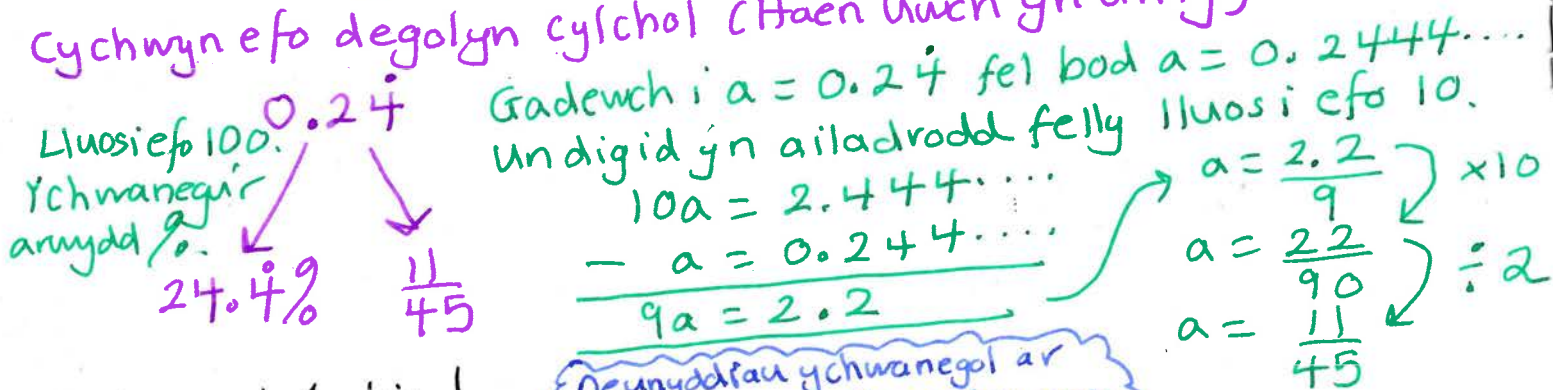 Cychwyn efo degolyn cylchol (Haen Uwch yn
0.24̇
Lluosi efo 100.
Ychwanegu'r
arwydd %.
24.4̇%
11/45
Gadewch i a = 0.24̇ fel bod a = 0.2444....
Un digid yn ailadrodd felly lluosi efo 10.
10a = 2.444....
- a = 0.244....
9a = 2.2
a = 2.2/9
×10
a = 22/90
÷2
a = 11/45
Deunyddiau ychwanegol ar